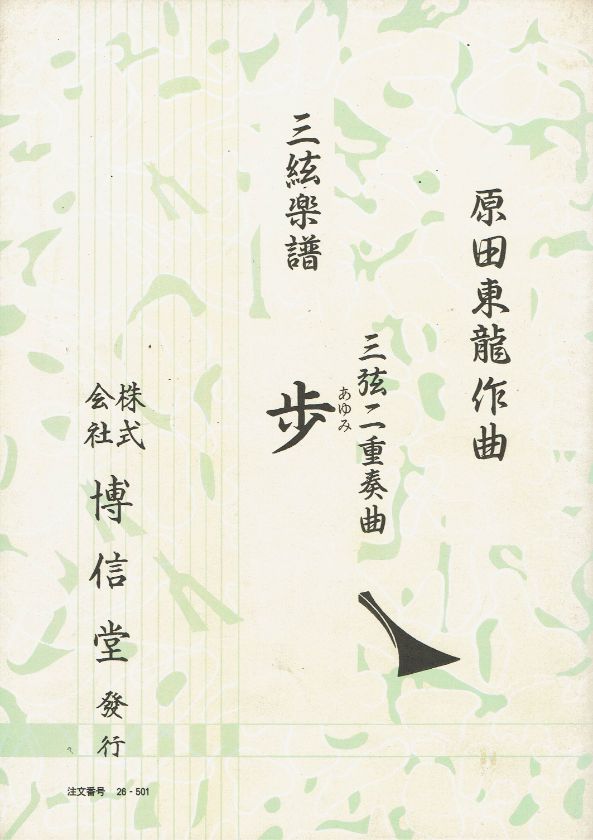 原田東龍作曲
三弦二重奏曲
あゆみ
歩
三絃楽譜
株式
会社
博信堂發行
注文番号 26-501